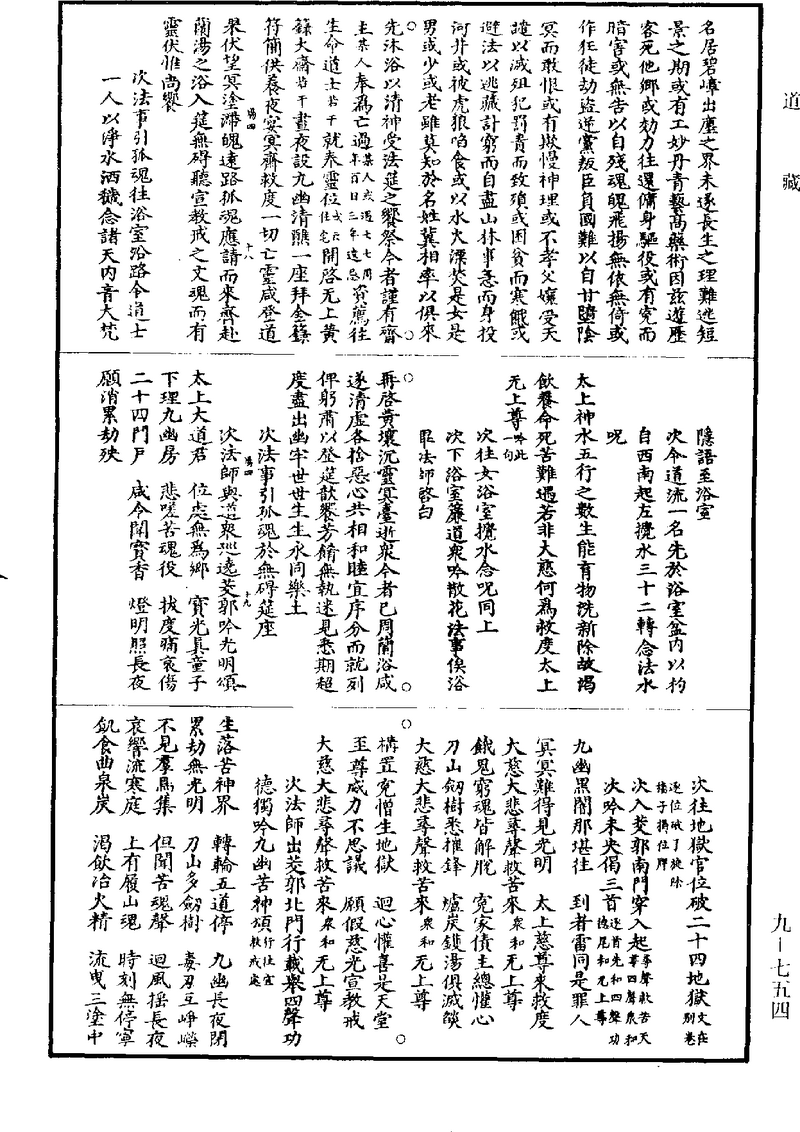 道藏
名居碧嶂出塵之界未遂長生之理難逃短
景之期或有工妙丹青藝高藥術因茲遊歷
客死他鄉或効力往還傭身驅役或有寃而
暗害或無告以自殘魂魄飛揚無依無倚或
作狂徒劫盜逆黨叛臣負國難以自甘墮陰
冥而敢恨或有欺慢神理或不孝父孃受天
譴以滅殂犯罰責而致殞或困貧而寒餓或
避法以逃藏計窮而自盡山林事急而身投
河井或被虎狼啗食或以水火漂焚是女是
男或少或老雖莫知於名姓冀相率以俱來
先沐浴以清神受法筵之饗祭今者謹有齋
主某人奉為亡過某人或遇七七周年百日三年遠忌資薦往
生命道士若干就奉靈位或云住宅開啓无上黃
籙大齋若干晝夜設九幽清醮一座拜金籙
符簡供養夜宴冥齊救度一切亡靈咸登道
果伏望冥塗滯魄遠路孤魂應請而來齊赴
蘭湯之浴入筵無碍聽宣教戒之文魂而有
靈伏惟尚饗
次法事引孤魂往浴室沿路令道士
一人以淨水洒穢念諸天內音大梵
隱語至浴室
次令道流一名先於浴室盆內以杓
自西南起左攪水三十二轉念法水
呪
太上神水五行之數生能育物洗新除故渴
飲養命死苦難遇若非大慈何為救度太上
无上尊吟此一句
次往女浴室攪水念呪同上
次下浴室簾道衆吟散花法事俟浴
畢法師啓白
再啓黃壤沉靈冥臺逝衆今者已周蘭浴咸
遂清虛各捨惡心共相和睦宜序分而就列
俾躬肅以登筵歆饗芳餚無執迷見悉期超
度盡出幽牢世世生生永同樂土
次法事引孤魂於無碍筵座
次法師與道衆巡遶茭郭吟光明頌
太上大道君　位處無為鄉　寶光真童子
下理九幽房　悲嗟苦魂役　拔度痛哀傷
二十四門戶　咸令聞寶香　燈明照長夜
願消累劫殃
次往地獄官位破二十四地獄文在別卷
逐位破了旋除橋子獄位牌
次入茭郭南門穿入起
次吟未央偈三首
九幽黑闇那堪往　到者雷同是罪人
冥冥難得見光明　太上慈尊來救度
大慈大悲尋聲救苦來衆和无上尊
餓鬼窮魂皆解脫　寃家債主總懽心
刀山劒樹悉摧鋒　爐炭鑊湯俱滅燄
大慈大悲尋聲救苦來衆和无上尊
構置寃憎生地獄　迴心懽喜是天堂
至尊威力不思議　願假慈光宣教戒
大慈大悲尋聲救苦來衆和无上尊
次法師出茭郭北門行載舉四聲功
德獨吟九幽苦神頌行往宣教戒處
生落苦神界　轉輪五道停　九幽長夜閉
累劫無光明　刀山多劒樹　毒刃互崢嶸
不見羣鳥集　但聞苦魂聲　迴風搖長夜
哀響流寒庭　上有履山魂　時刻無停寧
飢食曲泉炭　渴飲冶火精　流曳三塗中
九－七五四